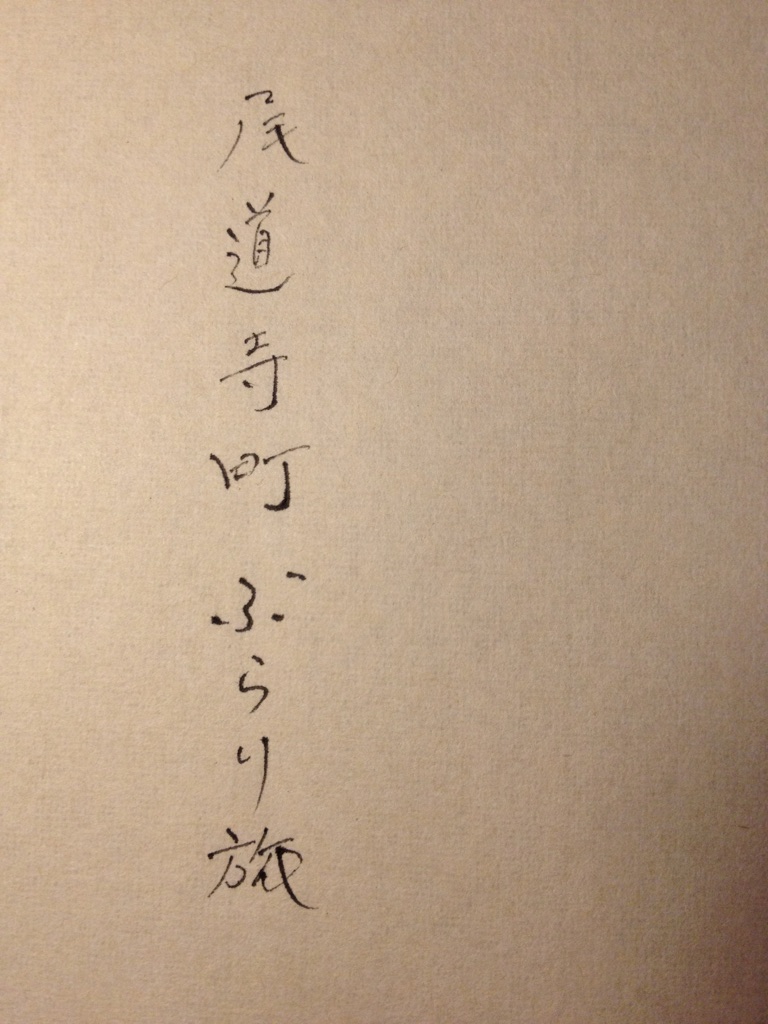 尾道寺町ぶらり旅